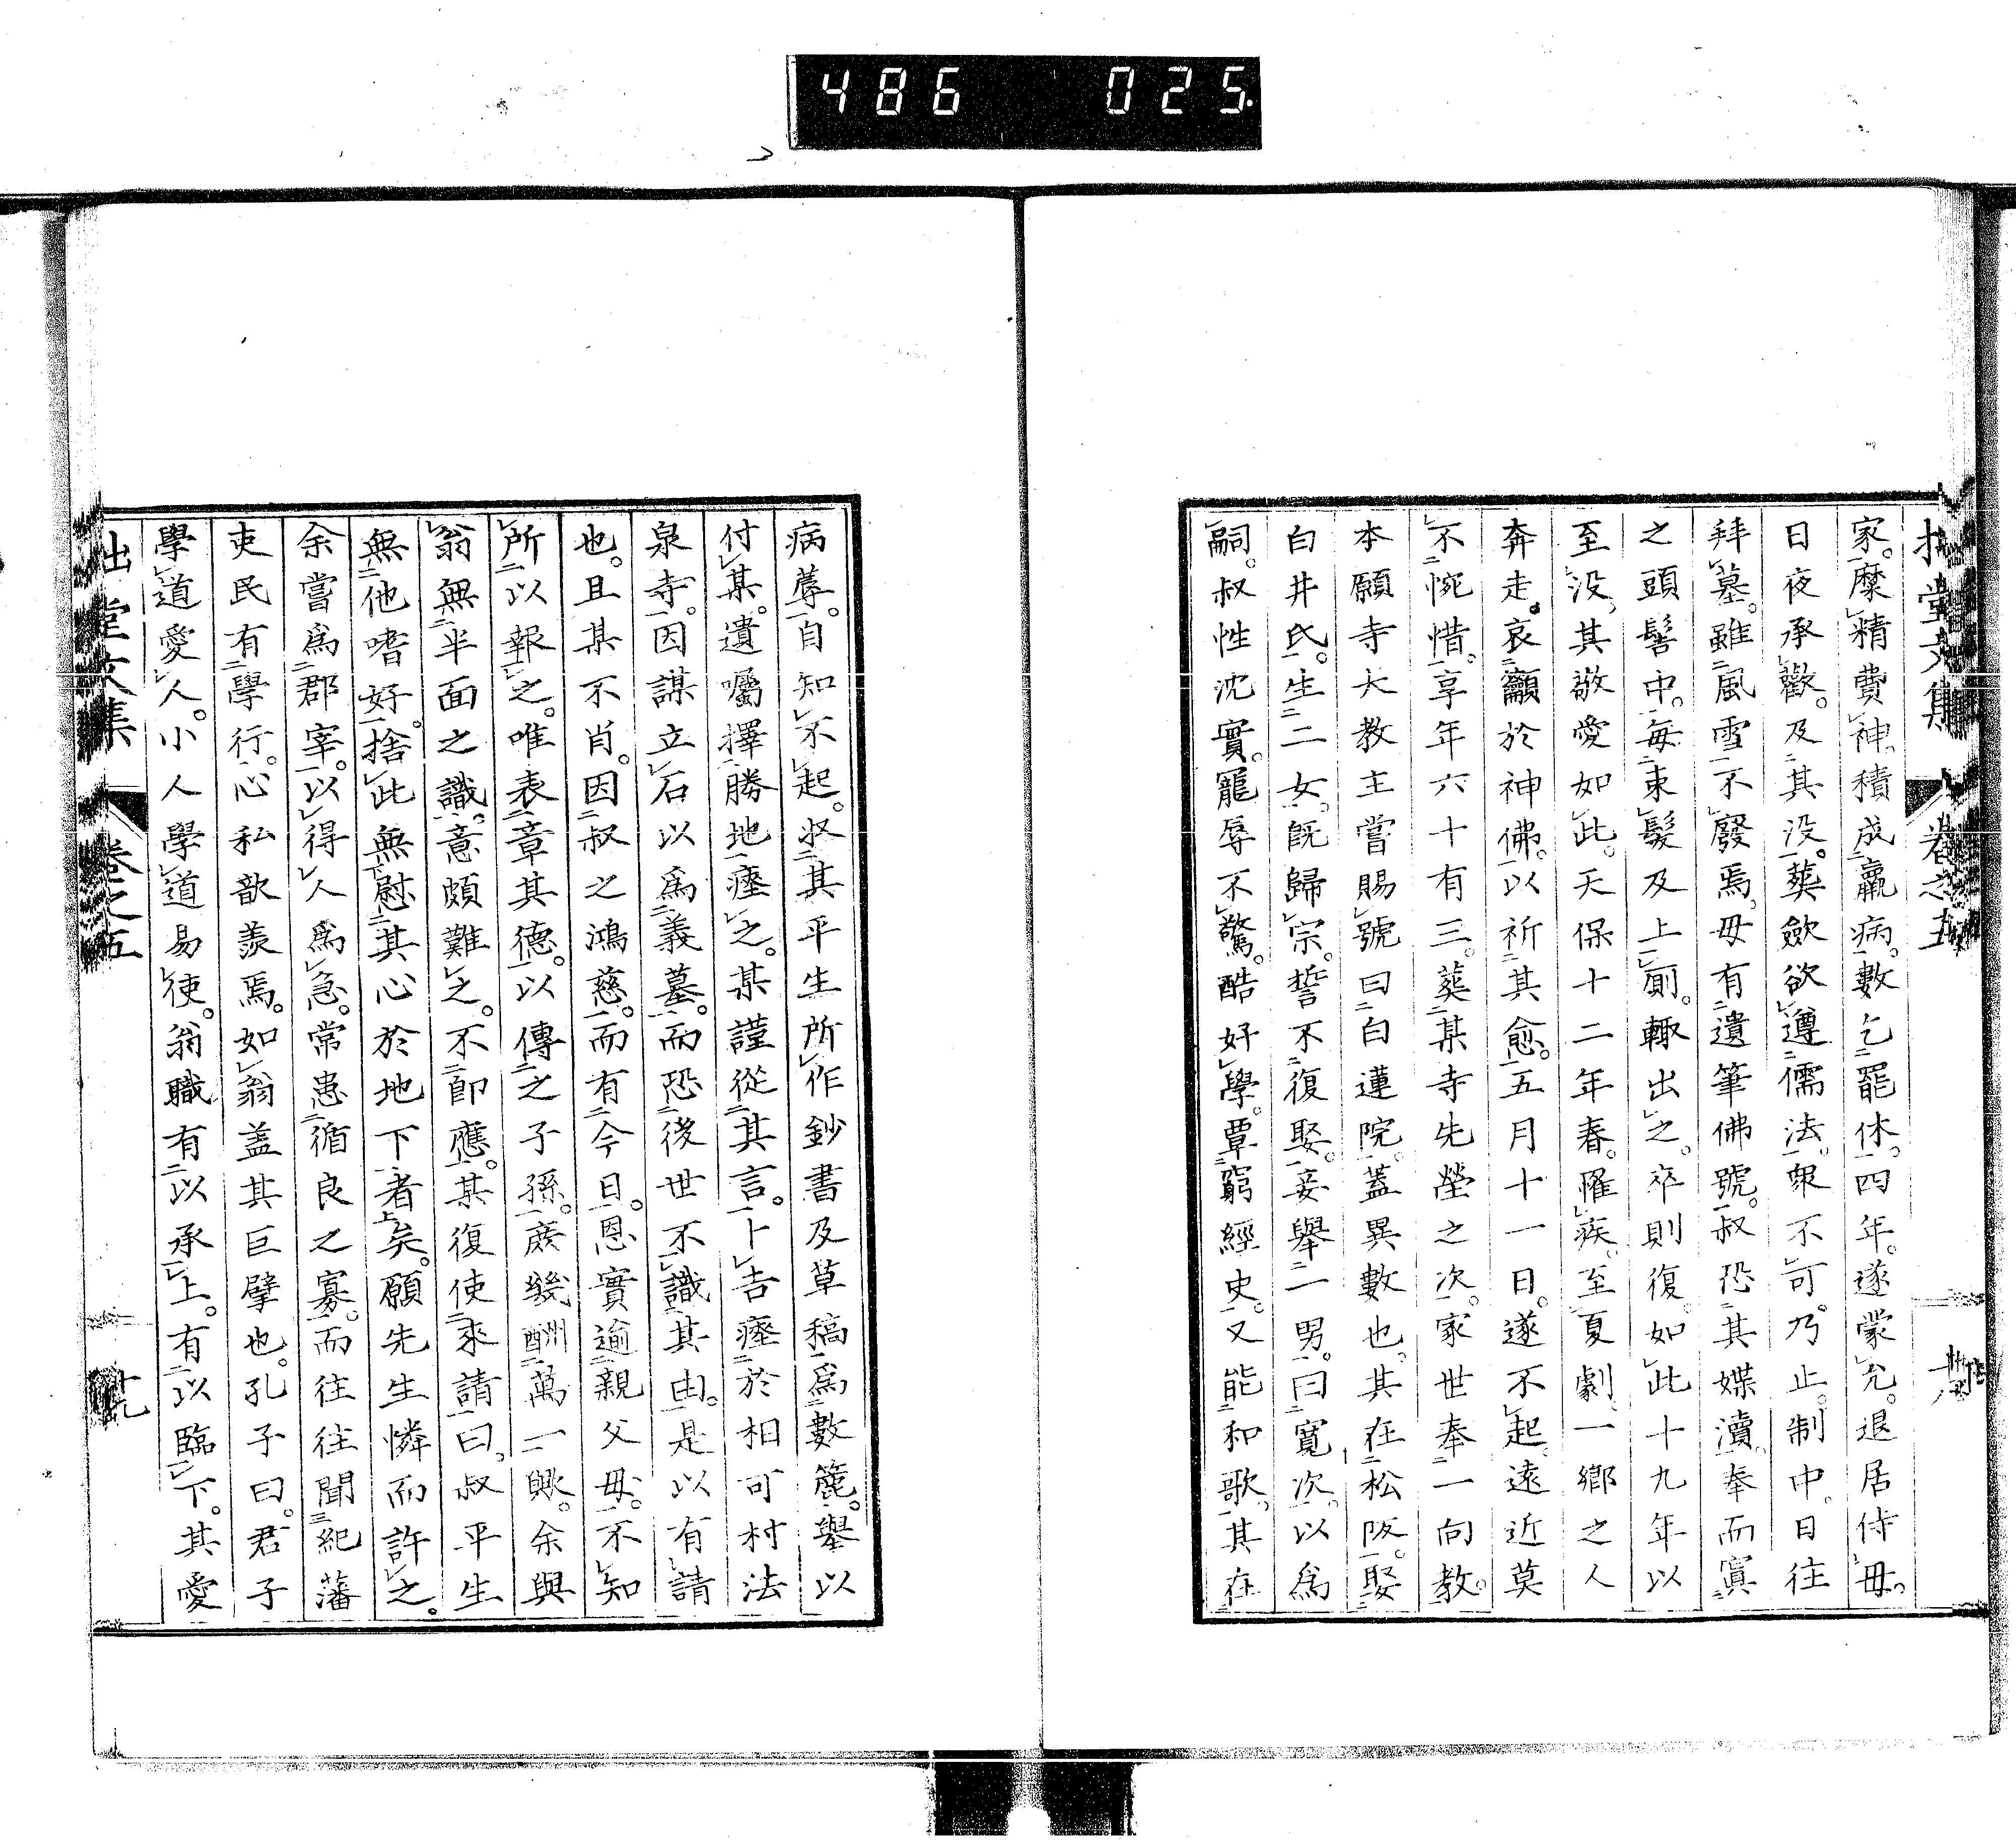 486 025
拙堂文集 卷之五
家。糜精費神。積成羸病。數乞罷休。四年。遂蒙允。退居侍母。
日夜承歡。及其没。葬斂欲遵儒法。衆不可。乃止。制中。日往
拜墓。雖風雪不廢焉。母有遺筆佛號。叔恐其媟瀆。奉而寘
之頭髻中。毎束髮及上厠。輙出之。卒則復。如此十九年以
至没。其敬愛如此。天保十二年春。罹疾。至夏劇。一鄉之人
奔走。哀籲於神佛。以祈其愈。五月十一日。遂不起。遠近莫
不惋惜。享年六十有三。葬某寺先塋之次。家世奉一向教。
本願寺大教主嘗賜號曰白蓮院。蓋異數也。其在松阪。娶
白井氏。生二女。既歸宗。誓不復娶。妾舉一男。曰寛次。以爲
嗣。叔性沈實。寵辱不驚。酷好學。覃窮經史。又能和歌。其在
病蓐。自知不起。收其平生所作鈔書及草稿爲數簏。舉以
付某。遺囑擇勝地瘞之。某謹從其言。卜吉瘞於相可村法
泉寺。因謀立石以爲義墓。而恐後世不識其由。是以有請
也。且某不肖。因叔之鴻慈。而有今日。恩實逾親父母。不知
所以報之。唯表章其德。以傳之子孫。庶幾酬萬一歟。余與
翁無半面之識。意頗難之。不卽應。其復使來請曰。叔平生
無他嗜好。捨此無慰其心於地下者矣。願先生憐而許之。
余嘗爲郡宰。以得人爲急。常患循良之寡。而往往聞紀藩
吏民有學行。心私歆羨焉。如翁盖其巨擘也。孔子曰。君子
學道愛人。小人學道易使。翁職有以承上。有以臨下。其愛
拙堂文集 卷之五 十九